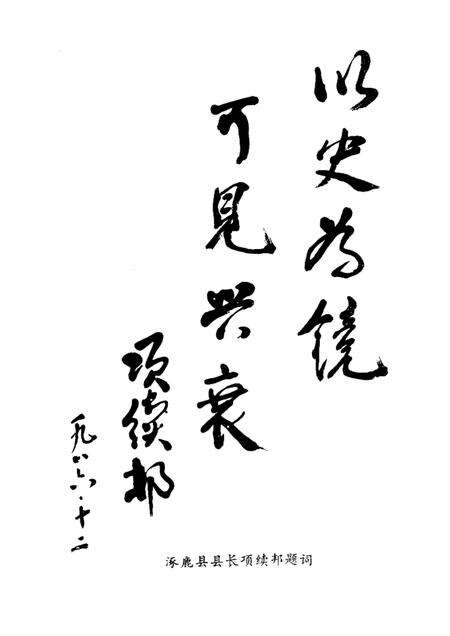 以史为镜
可見兴衰
项续邦
一九八六·十二
涿鹿县县长项续邦题词